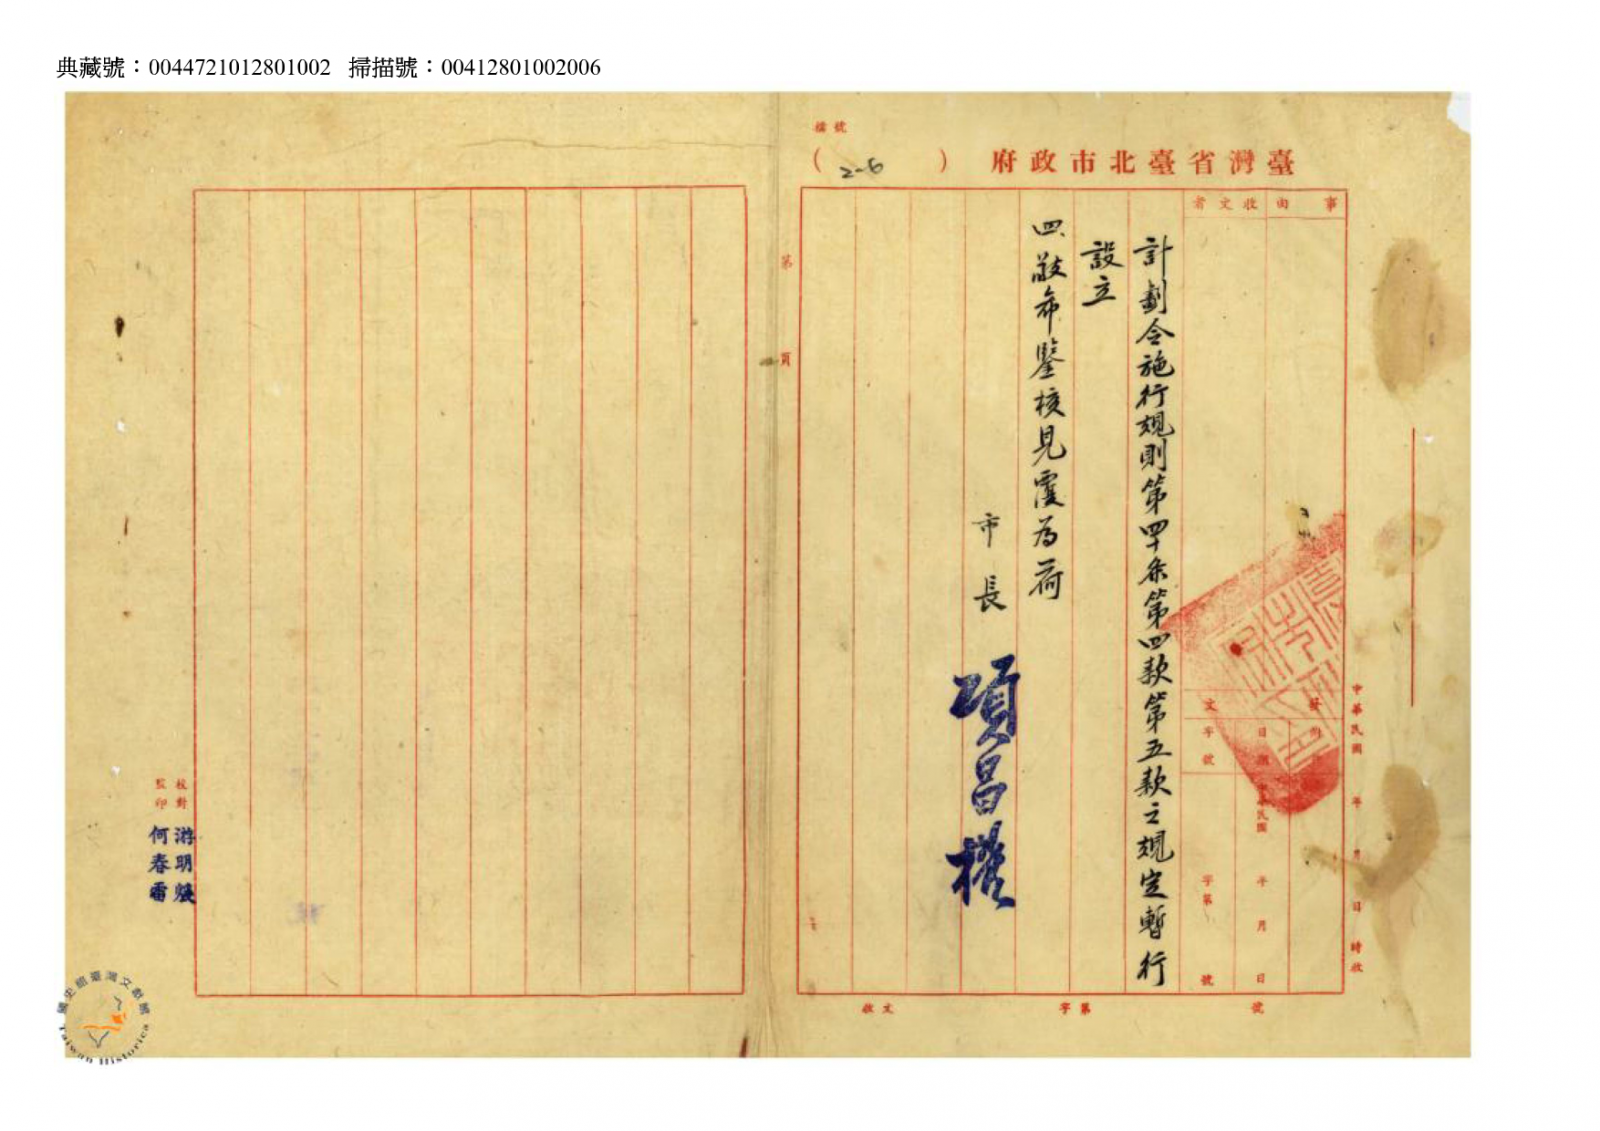 典藏號：0044721012801002 掃描號：00412801002006
檔號
( 2-6 )
臺灣省臺北市政府
事由
收文者
計劃令施行規則第四十条第四款第五款之規定暫行
設立
四、敬希鑒核見覆為荷
市長
項昌權
發
文
附
日期
字號
中華民國
年
月
日
字第
號
中華民國 年 月 日 時收
收文
字第
號
第
頁
校對
游明
監印
何春雷
國史館臺灣文獻館
Taiwan Historica